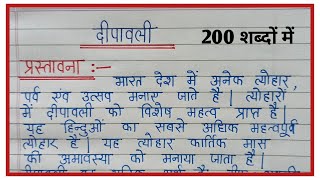 दीपावली
200 शब्दों में
प्रस्तावना :—
भारत देश में अनेक त्योहार,
पर्व एंव उत्सव मनाए जाते है | त्योहारों
में दीपावली को विशेष महत्व प्राप्त है |
यह हिन्दुओं का सबसे अधिक महत्वपूर्ण
त्योहार हैं | यह त्योहार कार्तिक मास
की अमावस्या को मनाया जाता हैं |